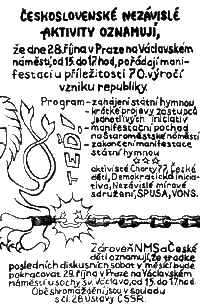 ČESKOSLOVENSKÉ NEZÁVISLÉ
AKTIVITY OZNAMUJÍ,
že dne 28. října v Praze na Václavském
náměstí, od 15. do 17. hod, pořádají mani-
festaci u příležitosti 70. výročí
vzniku republiky.
Program - zahájení státní hymnou
- krátké projevy zástupců
jednotlivých iniciativ
- manifestační pochod
na Staroměstské náměstí
- zakončení manifestace
státní hymnou
TEĎ!
☆☆☆
aktivisté Charty 77, České
děti, Demokratická inicia-
tiva, Nezávislé mírové
sdružení, SPUSA, VONS.
Zároveň NMS a České
děti oznamují, že středke
posledních diskusních sobot v měsíci bude
pokračovat 29. října v Praze na Václavském
náměstí u sochy sv. Václava, od 15. do 17 hod.
Obě shromáždění jsou v souladu
s čl. 28 Ústavy ČSSR.